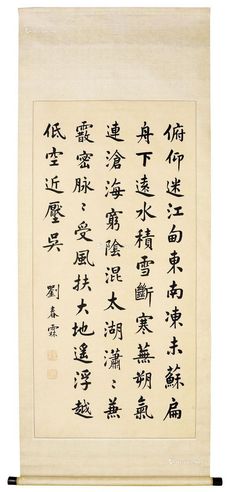 俯仰迷江甸東南凍未蘇扁
舟下遠水積雪斷寒蕪朔氣
連滄海窮陰混太湖瀟〻兼
霰密脉〻受風扶大地遥浮越
低空近壓吳
劉春霖